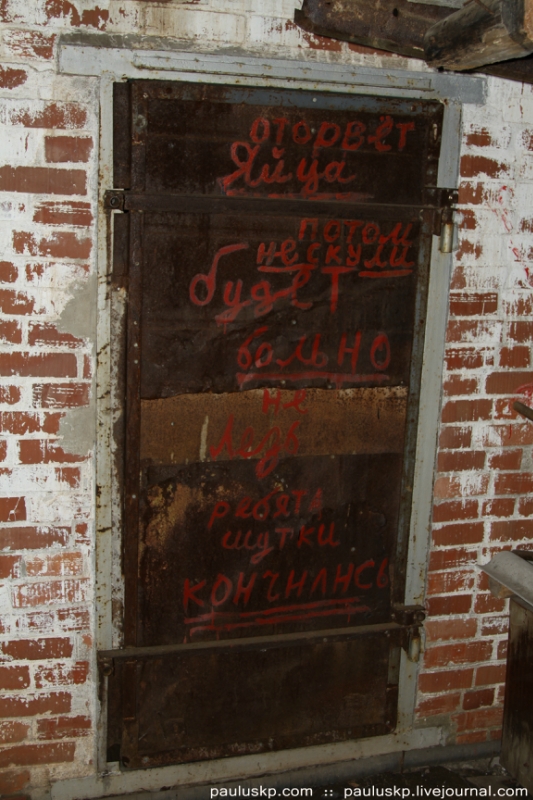 оторвет
яйца
потом
не скули
будет
больно
не
лезь
ребята
шутки
кончились
pauluskp.com :: pauluskp.livejournal.com